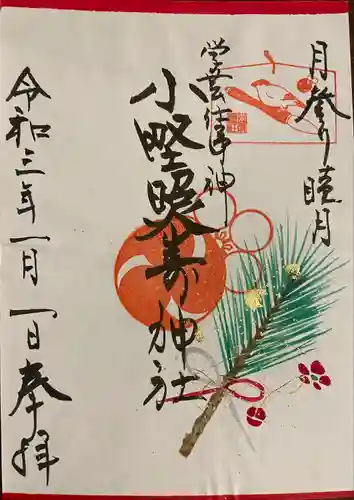 月参り睦月
学芸の神
小野照崎神社
令和三年一月一日奉拝